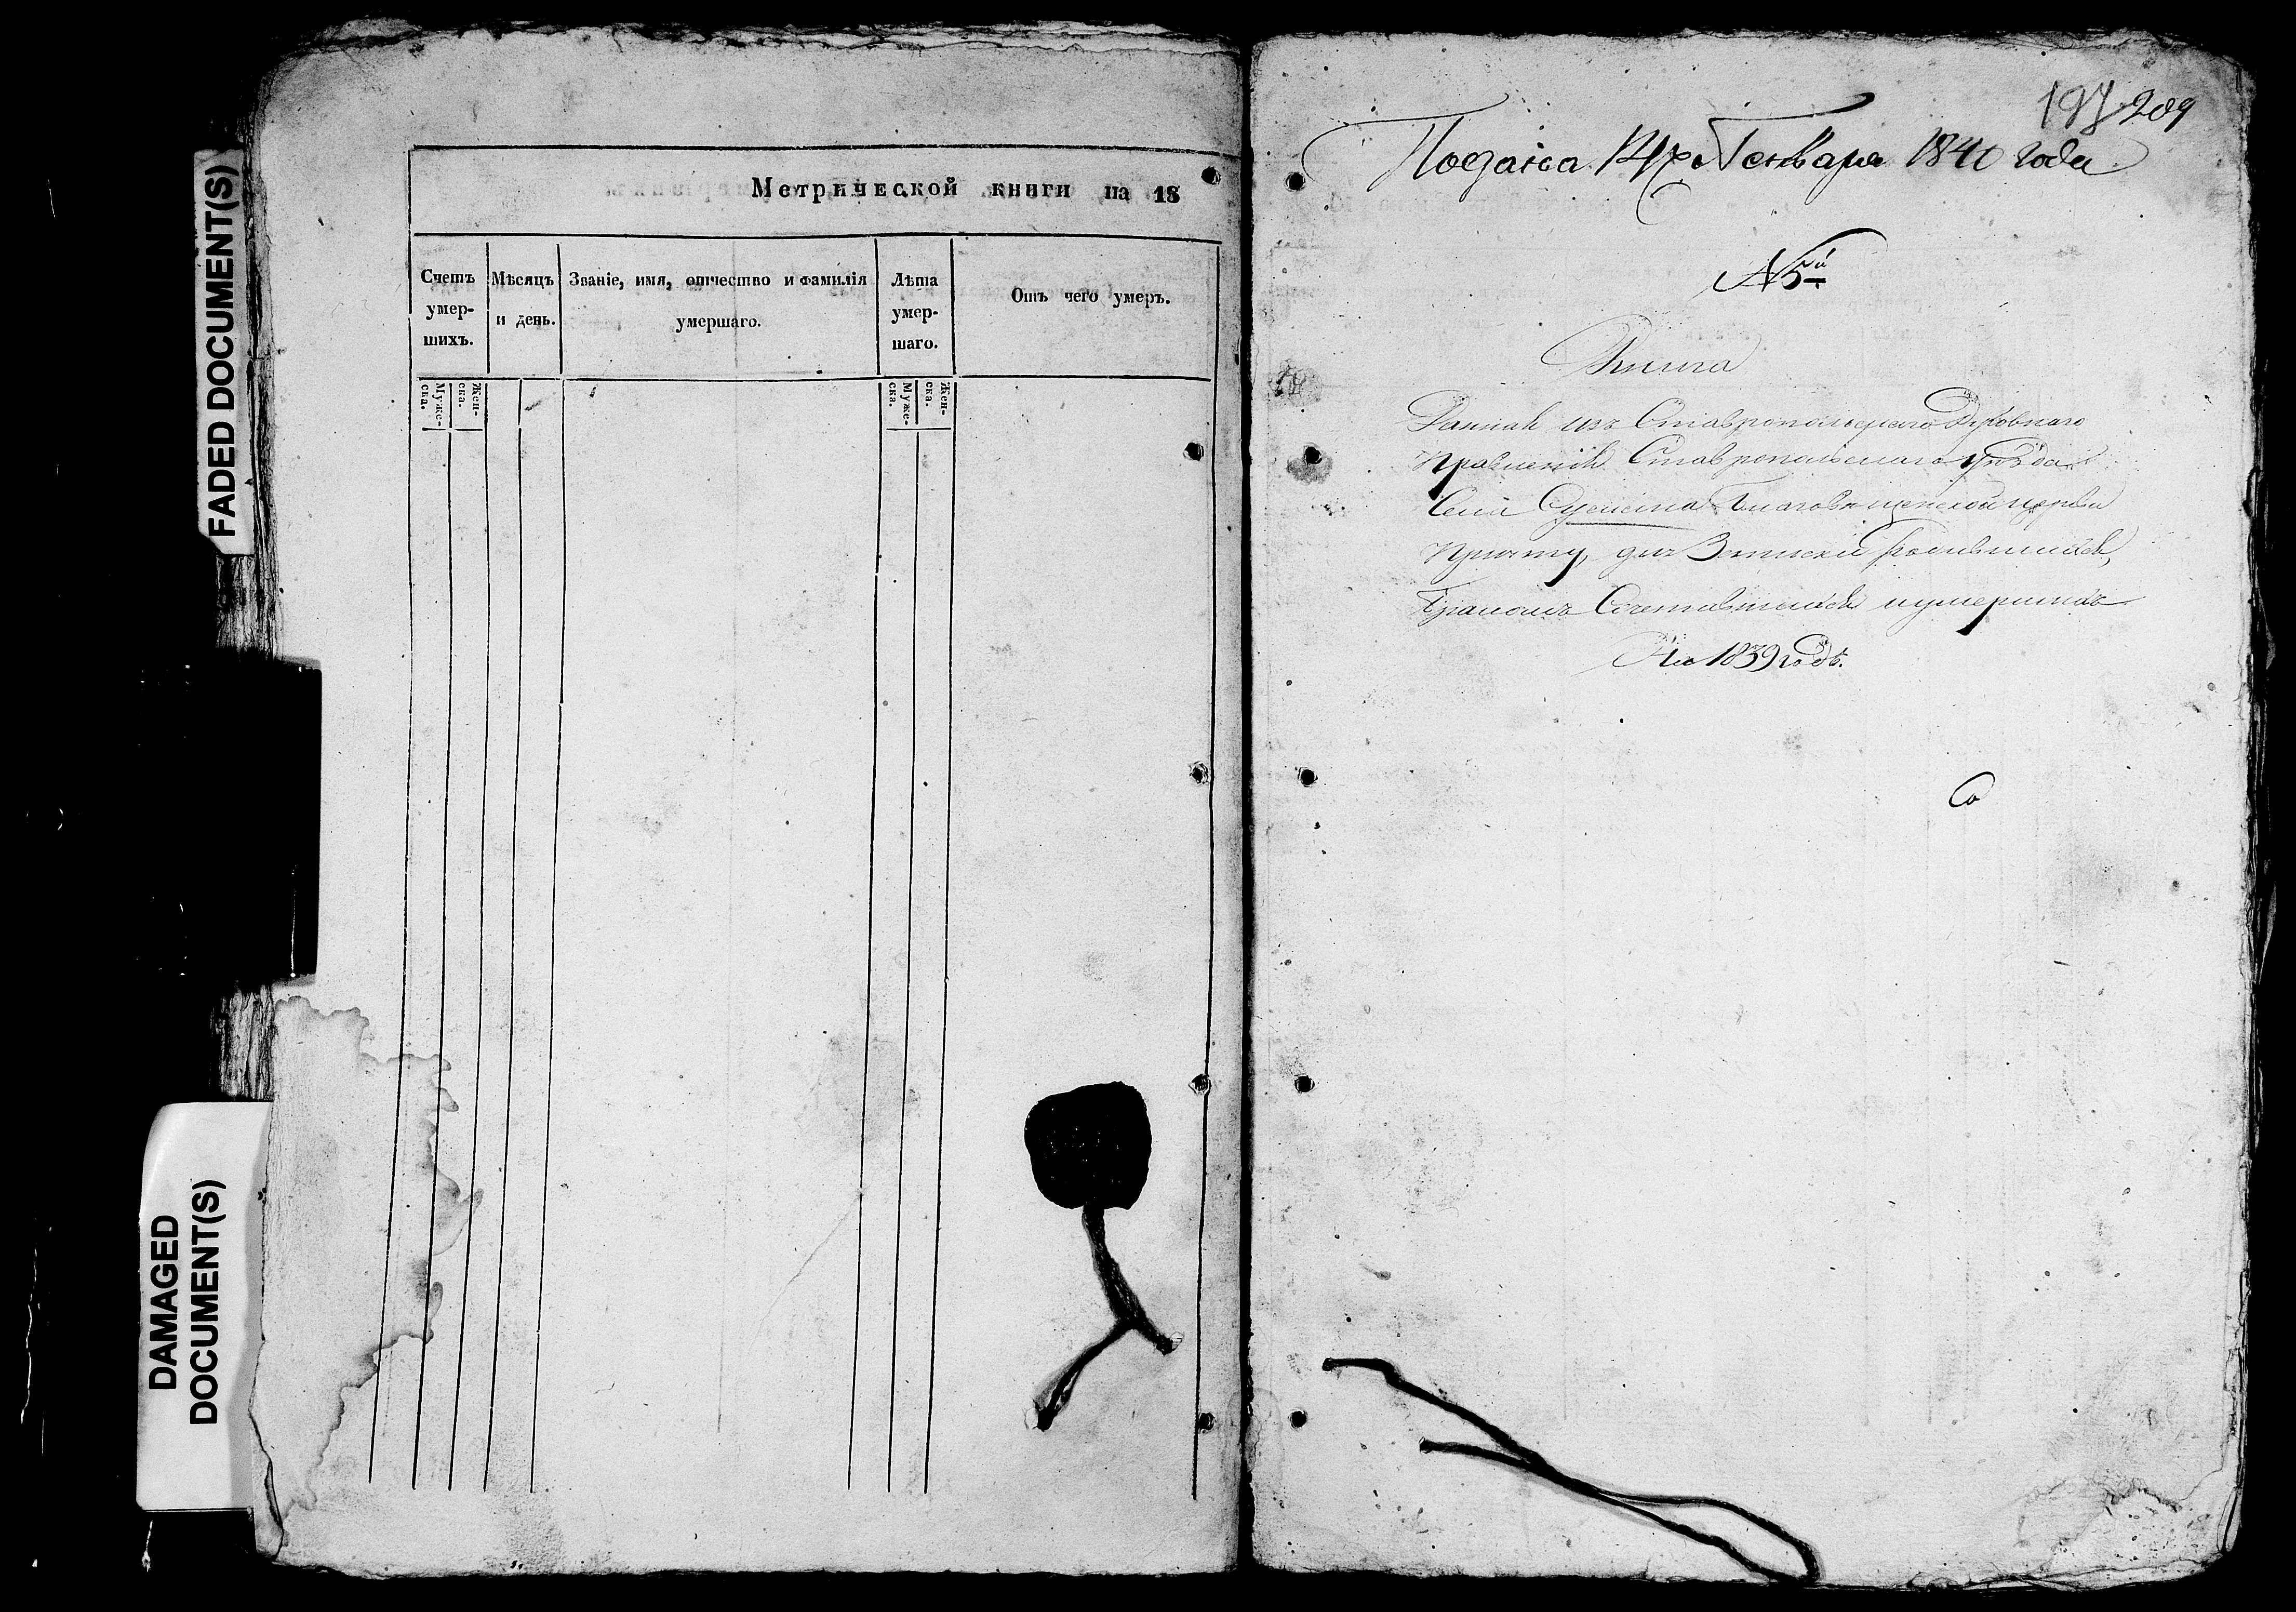 FADED DOCUMENT(S)
DAMAGED
DOCUMENT(S)
Метрической книги на 18
Счетъ умер- шихъ.
Мѣсяцъ и день.
Званіе, имя, отчество и фамилія умершаго.
Лѣта умер- шаго.
Отъ чего умеръ.
Муже- ска.
Жен- ска.
Муже- ска.
Жен- ска.
197 209
Подана Генваря 1840 года
№ 5й
Книга
Данная изъ Ставропольскаго Духовнаго
Правленія Ставропольскаго уѣзда
Села Сускана Благовѣщенской церкви
Причту, для Записки родившихся,
Бракомъ Сочетавшихся и умершихъ
На 1839 годъ.